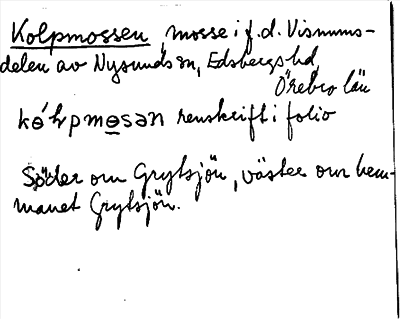 Kolpmossen, mosse i f.d. Visnums-
delen av Nysunds sn, Edsbergs hd,
Örebro län
renskrift i folio
Söder om Grytsjön, väster om hem-
manet Grytsjön.